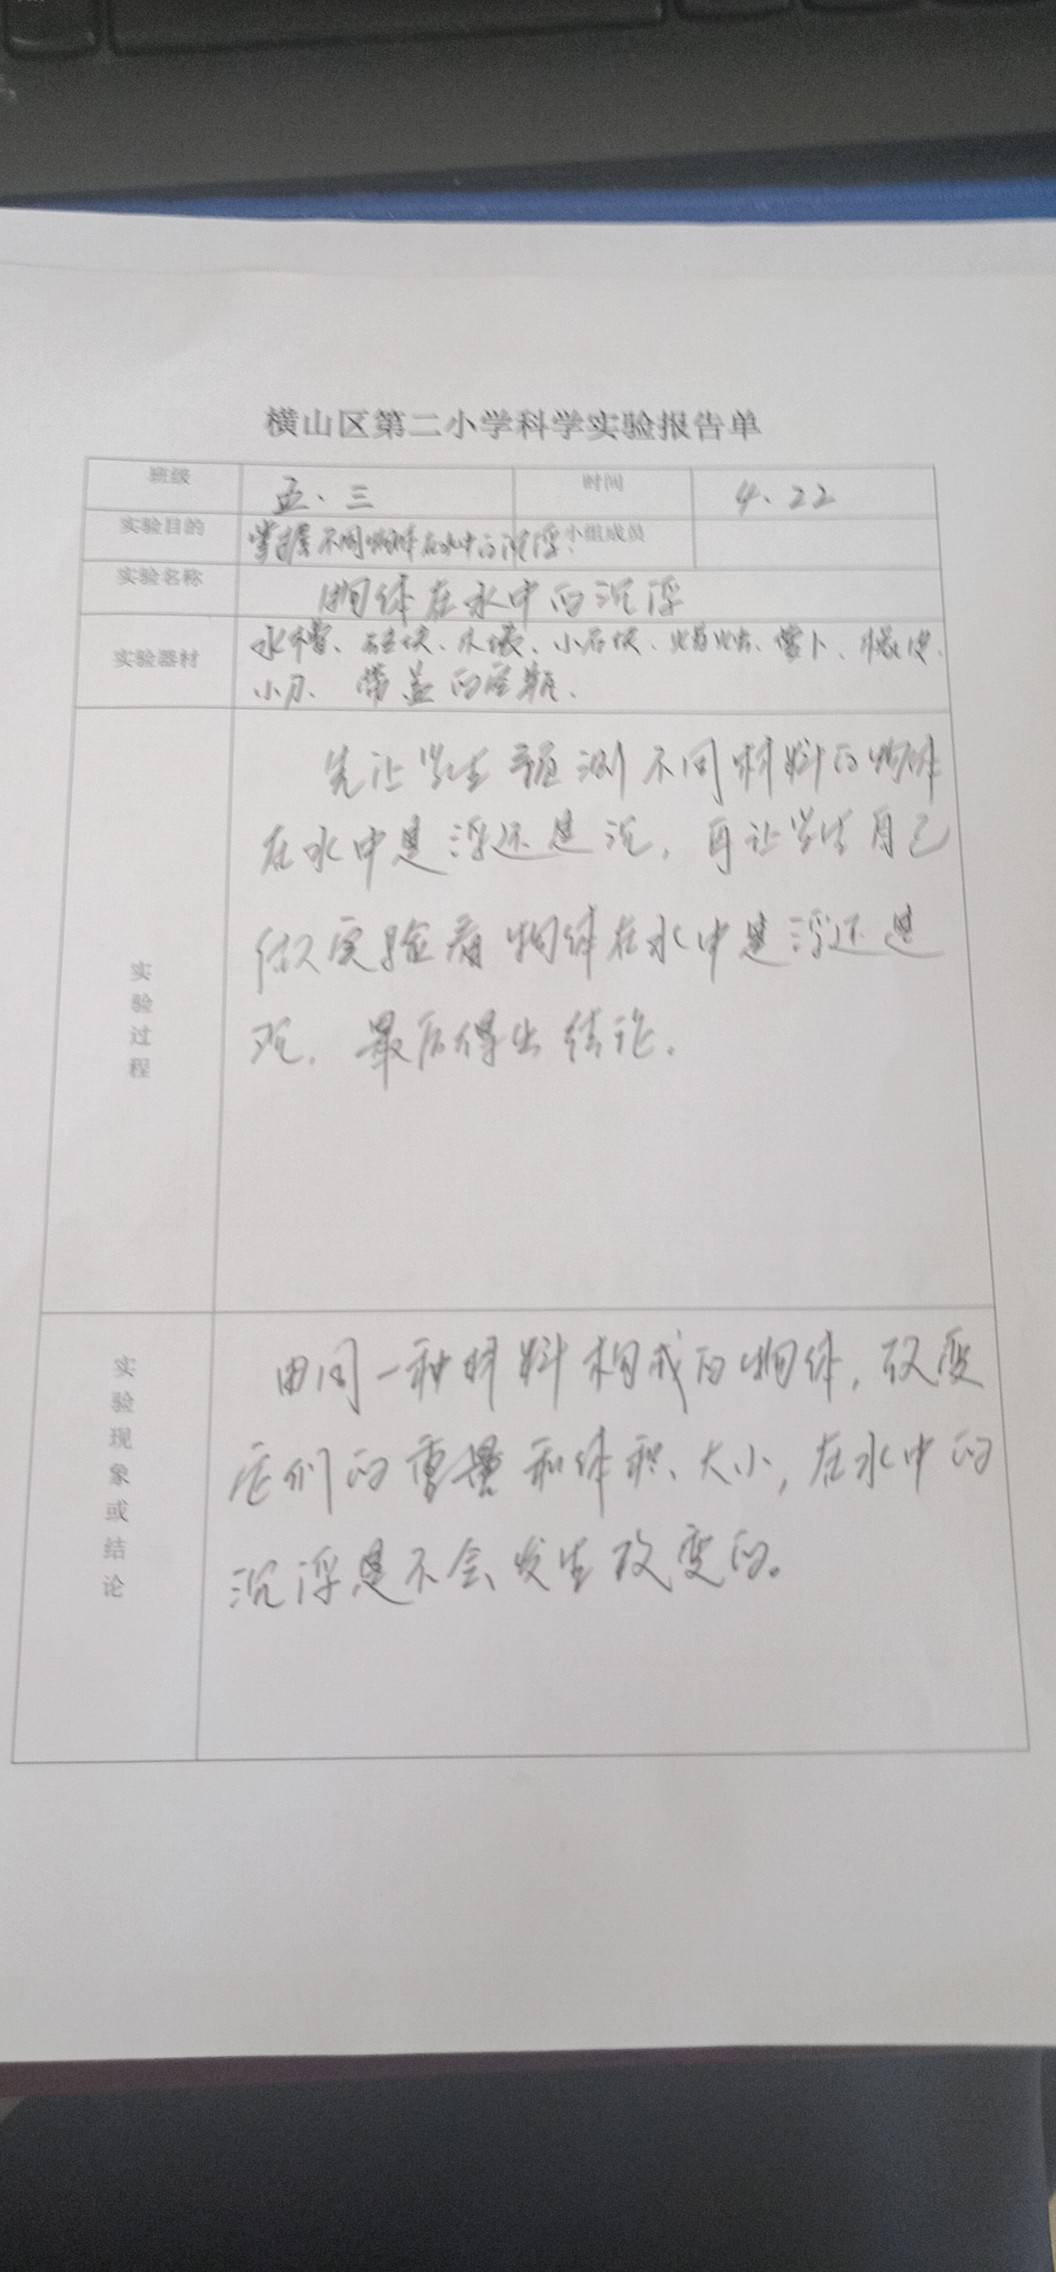 横山区第二小学科学实验报告单
班级 五.三 时间 4.22
实验目的 掌握不同物体在水中的沉浮. 小组成员
实验名称 物体在水中的沉浮
实验器材 水槽、 块、木块、小石块、 萝卜、橡皮、
小刀、带盖的空瓶.
实验过程
先让学生预测不同材料的物体
在水中是浮还是沉,再让学生自己
做实验看物体在水中是浮还是
沉.最后得出结论.
实验现象或结论
由同一种材料构成的物体,改变
它们的重量和体积、大小,在水中的
沉浮是不会发生改变的。